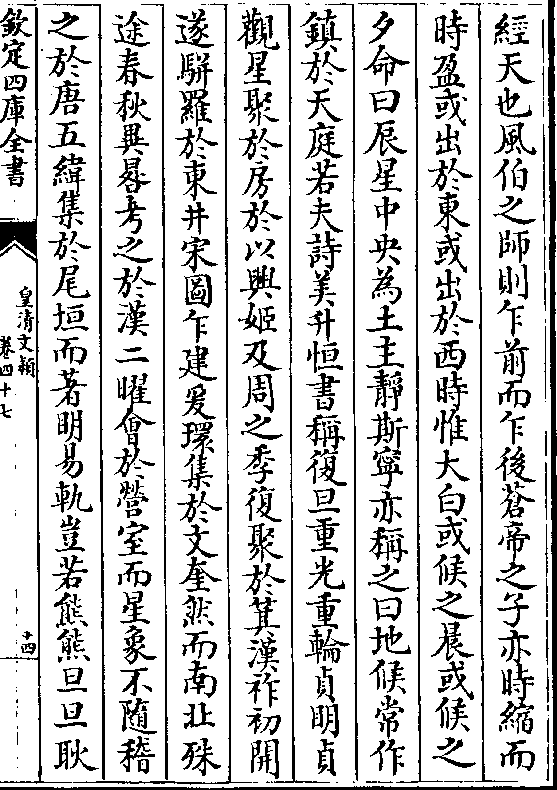 經天也風伯之師則乍前而乍後蒼帝之子亦時縮而
時盈或出於東或出於西時惟大白或候之晨或候之
夕命曰辰星中央為土主靜斯寧亦稱之曰地候常作
鎮於天庭若夫詩美升恒書稱復旦重光重輪貞明貞
觀星聚於房於以興姬及周之季復聚於箕漢祚初開
遂駢羅於東井宋圖乍建爰環集於文奎然而南北殊
途春秋異晷考之於漢二曜會於營室而星象不隨稽
之於唐五緯集於尾垣而著明易軌豈若熊熊旦旦耿
欽定四庫全書
皇清文穎
卷四十七
十四